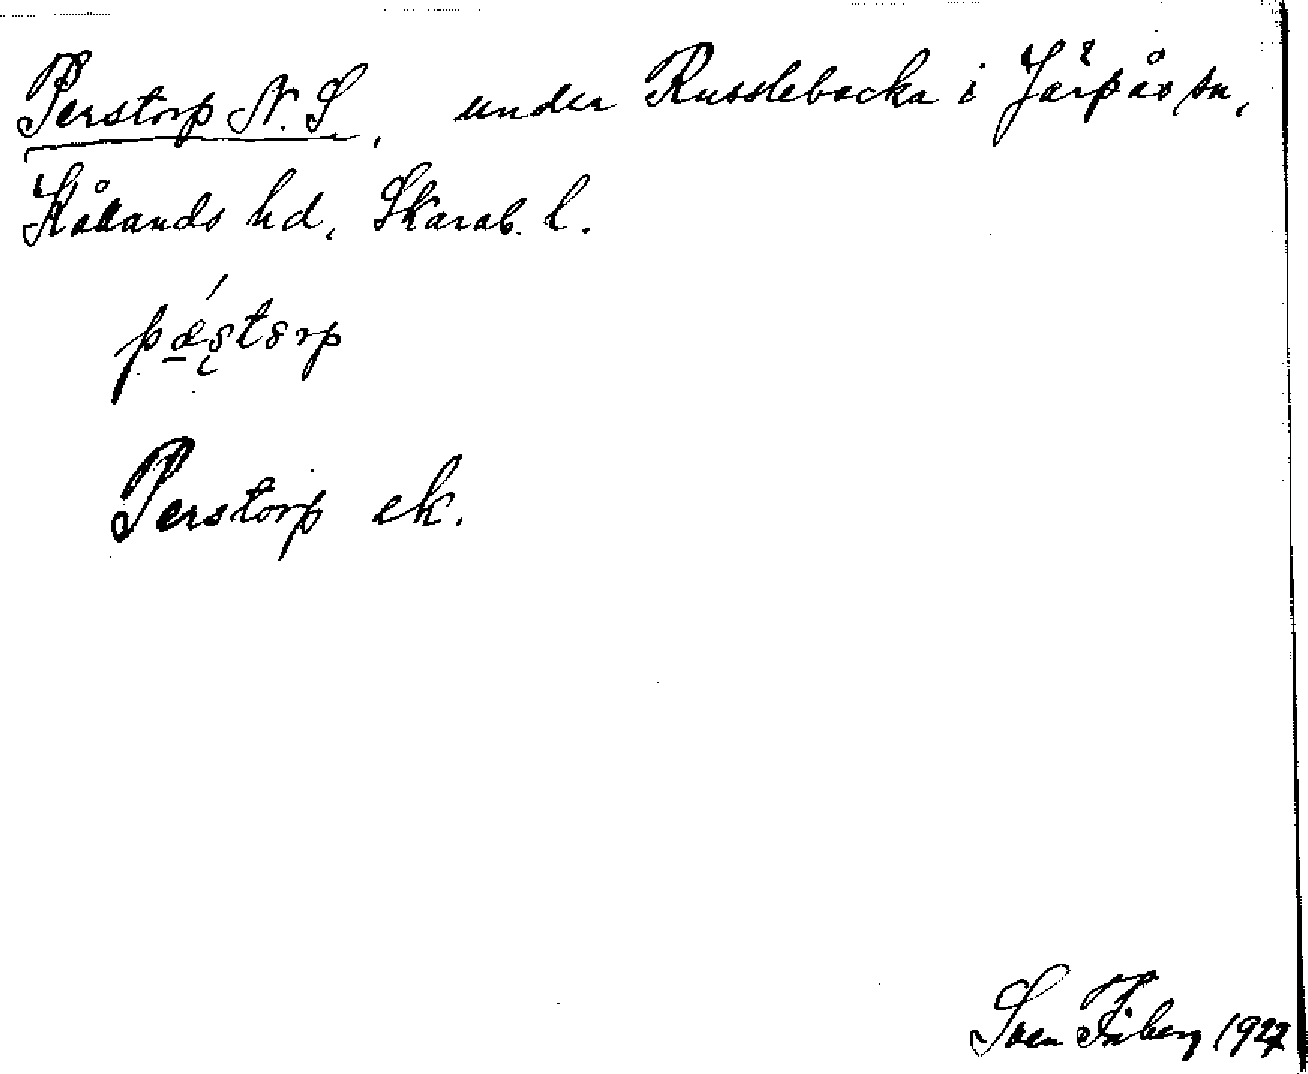 Perstorp N. S., under Russlebacka i Järpås sn,
Kållands hd, Skarab. l.
pǽstorp
Perstorp ek.
Sven Fåberg 1927